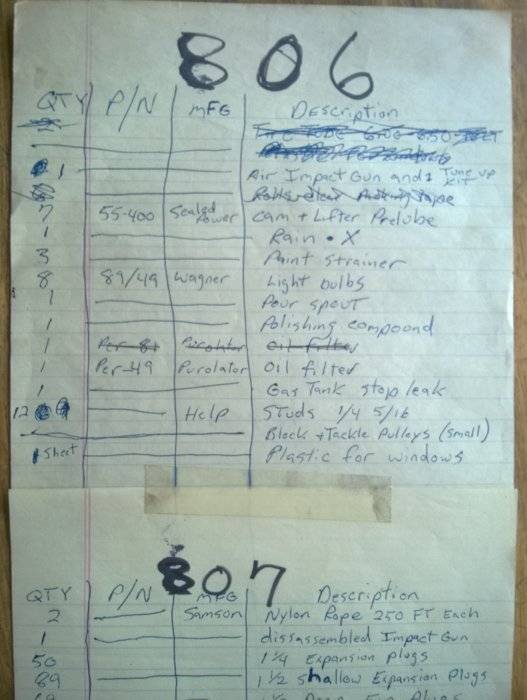 806
QTY P/N MFG Description
1 Air Impact Gun and 1 Tune up Kit
7 55-400 Sealed Power Cam + Lifter Prelube
1 Rain • X
3 Paint strainer
8 89/49 Wagner Light bulbs
1 Pour spout
1 Polishing compoond
1 Per-81 Purolator Oil filter
1 Per-49 Purolator Oil filter
1 Gas Tank stop leak
12 Help Studs 1/4 5/16
Block + Tackle Pulleys (small)
1 Sheet Plastic for windows
807
QTY P/N MFG Description
2 Samson Nylon Rope 250 FT Each
1 dissassembled Impact Gun
50 1 1/4 Expansion plugs
89 1 1/2 Shallow Expansion Plugs